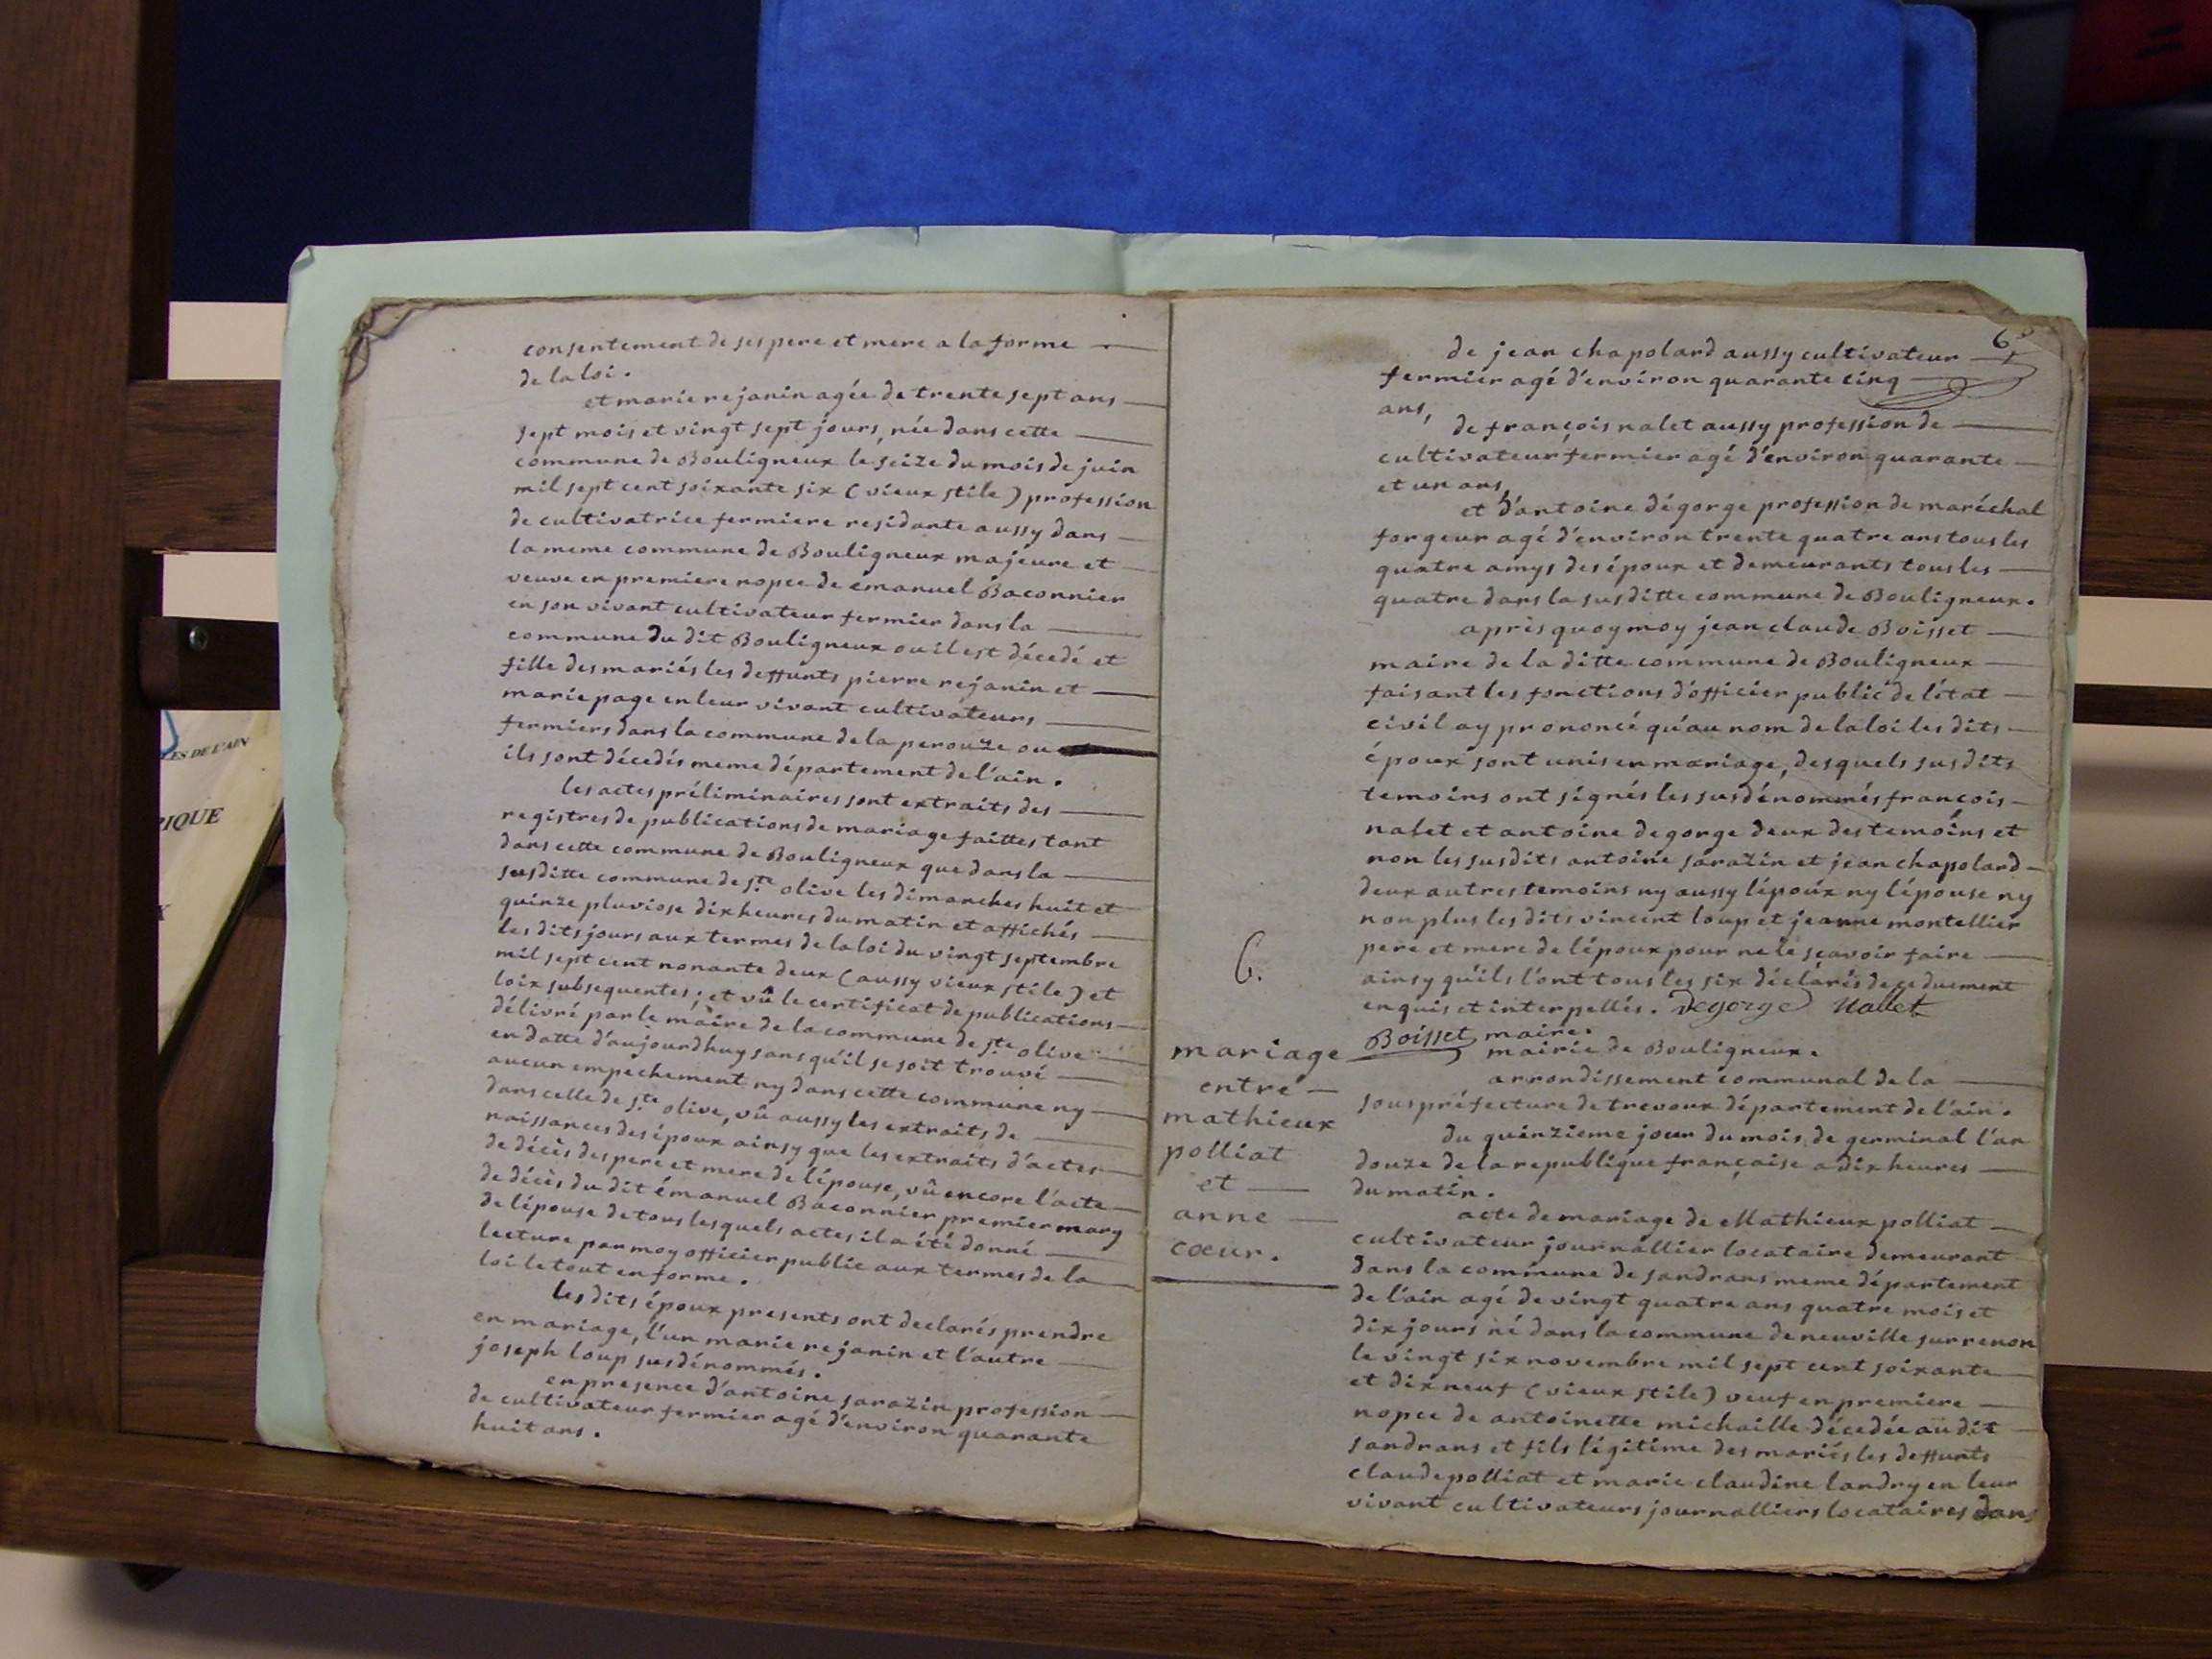 consentement de ses pere et mere a la forme
de la loi.
et marie rejanin agée de trente sept ans
sept mois et vingt sept jours, née dans cette
commune de Bouligneux le seize du mois de juin
mil sept cent soixante six (vieux stile) profession
de cultivatrice fermiere residante aussy dans
la meme commune de Bouligneux majeure et
veuve en premiere nopce de émanuel Baconnier
en son vivant cultivateur fermier dans la
commune du dit Bouligneux ou il est décedé et
fille des mariés les deffunts pierre rejanin et
marie page en leur vivant cultivateurs
fermiers dans la commune de la perouze ou
ils sont décedés meme département de l'ain.
les actes préliminaires sont extraits des
registres de publications de mariage faittes tant
dans cette commune de Bouligneux que dans la
susditte commune de ste olive les dimanches huit et
quinze pluviose dix heures du matin et affichés
les dits jours aux termes de la loi du vingt septembre
mil sept cent nonante deux (aussy vieux stile) et
loix subsequentes; et vû le certificat de publications
délivré par le maire de la commune de ste olive
en datte d'aujourdhuy sans qu'il se soit trouvé
aucun empechement ny dans cette commune ny
dans celle de ste olive, vû aussy les extraits de
naissances des époux ainsy que les extraits d'actes
de décès des pere et mere de l'épouse, vû encore l'acte
de décès du dit émanuel Baconnier premier mary
de l'épouse de tous lesquels actes il a été donné
lecture par moy officier public aux termes de la
loi le tout en forme.
les dits époux presents ont declarés prendre
en mariage, l'un marie rejanin et l'autre
joseph loup susdénommés.
en presence d'antoine sarazin profession
de cultivateur fermier agé d'environ quarante
huit ans.
6
de jean chapolard aussy cultivateur
fermier agé d'environ quarante cinq
ans,
de françois nalet aussy profession de
cultivateur fermier agé d'environ quarante
et un ans,
et d'antoine dégorge profession de maréchal
forgeur agé d'environ trente quatre ans tous les
quatre amys des époux et demeurants tous les
quatre dans la susditte commune de Bouligneux.
après quoy moy jean claude Boisset
maire de la ditte commune de Bouligneux
faisant les fonctions d'officier public de l'état
civil ay prononcé qu'au nom de la loi les dits
époux sont unis en mariage, desquels susdits
temoins ont signés les susdénommés françois
nalet et antoine degorge deux des temoins et
non les susdits antoine sarazin et jean chapolard
deux autres temoins ny aussy l'époux ny l'épouse ny
non plus les dits vincent loup et jeanne montellier
pere et mere de l'époux pour ne le sçavoir faire
ainsy qu'ils l'ont tous les six déclarés de ce duement
enquis et interpellés. Degorge Nallet
Boisset maire.
6.
mariage
entre
mathieux
polliat
et
anne
cœur.
mairie de Bouligneux.
arrondissement communal de la
souspréfecture de trevoux département de l'ain.
du quinzieme jour du mois de germinal l'an
douze de la republique française a dix heures
du matin.
acte de mariage de Mathieux polliat
cultivateur journallier locataire demeurant
dans la commune de sandrans meme département
de l'ain agé de vingt quatre ans quatre mois et
dix jours né dans la commune de neuville sur renon
le vingt six novembre mil sept cent soixante
et dix neuf (vieux stile) veuf en premiere
nopce de antoinette michaille décedée au dit
sandrans et fils légitime des mariés les deffunts
claude polliat et marie claudine landry en leur
vivant cultivateurs journalliers locataires dans
ES DE L'AIN
IQUE